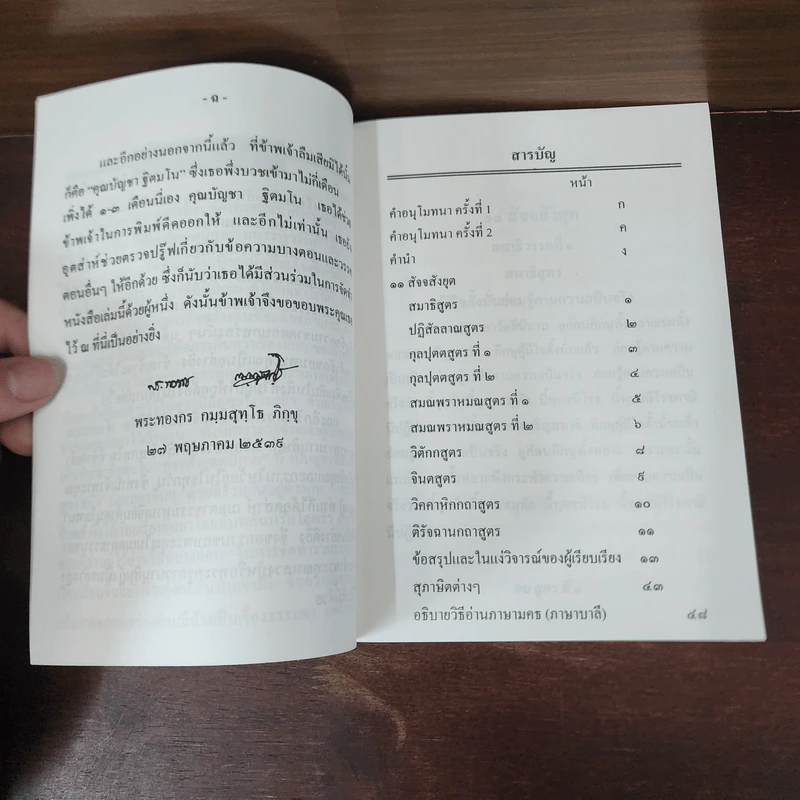 - ฉ -
และอีกอย่างนอกจากนี้แล้ว ที่ข้าพเจ้าลืมเสียมิได้นั้น
ก็คือ "คุณบัญชา ฐิตมโน" ซึ่งเธอพึ่งบวชเข้ามาไม่กี่เดือน
เพิ่งได้ ๑-๓ เดือนนี้เอง คุณบัญชา ฐิตมโน เธอได้ช่วย
ข้าพเจ้าในการพิมพ์ดีดออกให้ และอีกไม่เท่านั้น
อุตส่าห์ช่วยตรวจปรู๊ฟเกี่ยวกับข้อความบางตอนและวรรค
ตอนอื่นๆ ให้อีกด้วย ซึ่งก็นับว่าเธอได้มีส่วนร่วมในการจัด
หนังสือเล่มนี้ด้วยผู้หนึ่ง ดังนั้นข้าพเจ้าจึงขอขอบพระคุณ
ไว้ ณ ที่นี่เป็นอย่างยิ่ง
พระทองกร กมฺมสุทฺโธ ภิกฺขุ
๒๗ พฤษภาคม ๒๕๓๙
สารบัญ
หน้า
คำอนุโมทนา ครั้งที่ 1 ก
คำอนุโมทนา ครั้งที่ 2 ค
คำนำ ง
๑๑ สัจจสังยุต
สมาธิสูตร ๑
ปฏิสัลลาณสูตร ๒
กุลปุตตสูตร ที่ ๑ ๓
กุลปุตตสูตร ที่ ๒ ๔
สมณพราหมณสูตร ที่ ๑ ๕
สมณพราหมณสูตร ที่ ๒ ๖
วิตักกสูตร ๘
จินตสูตร ๙
วิคคาหิกกถาสูตร ๑๐
ติรัจฉานกถาสูตร ๑๑
ข้อสรุปและในแง่วิจารณ์ของผู้เรียบเรียง ๑๓
สุภาษิตต่างๆ ๔๓
อธิบายวิธีอ่านภาษามคธ (ภาษาบาลี) ๔๘